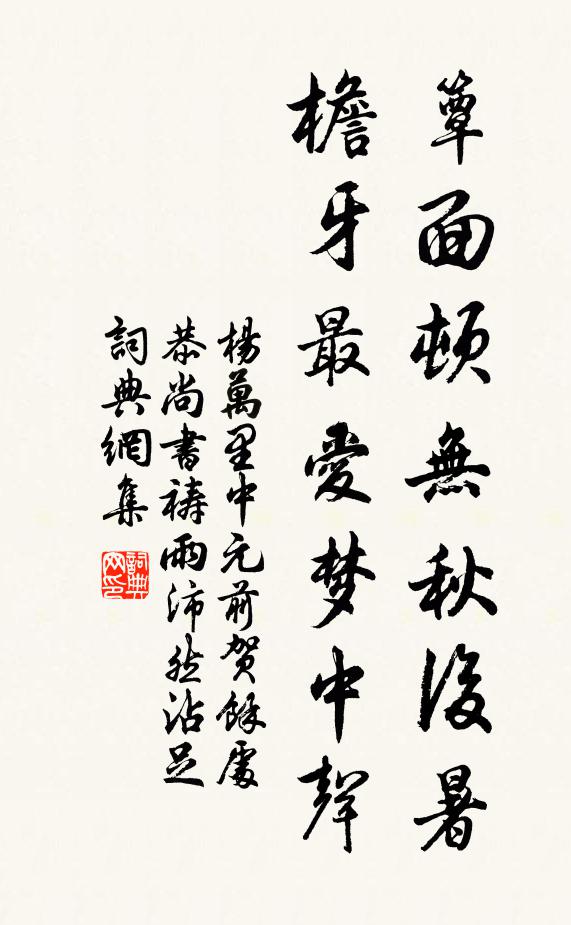 簟面頓無秋後暑
檐牙最愛梦中聲
楊萬里中元前賀餘處
恭尚書禱雨沛然沾足
詞典網集
詞典網印